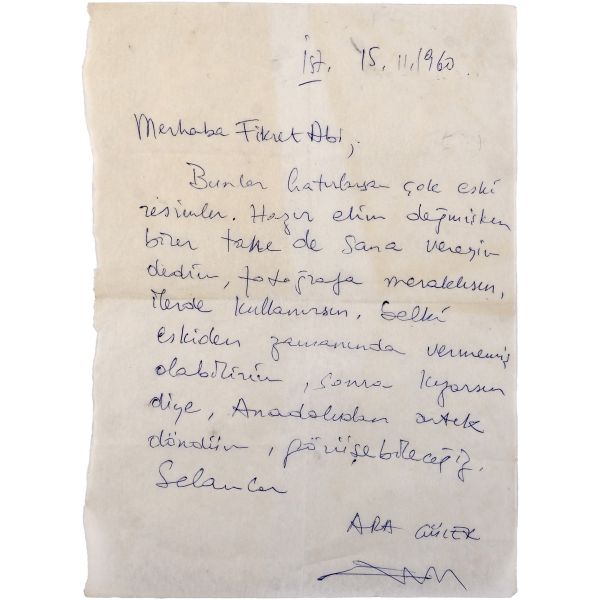 İst. 15.11.1960
Merhaba Fikret Abi,
Bunlar hatırlarsan çok eski
resimler. Hazır elim değmişken
birer tane de sana vereyim
dedim, fotoğrafa meraklısın,
ilerde kullanırsın. Belki
eskiden zamanında vermemiş
olabilirim, sonra kızarsın
diye, Anadoludan artık
döndüm, görüşebileceğiz.
Selamlar
ARA GÜLER